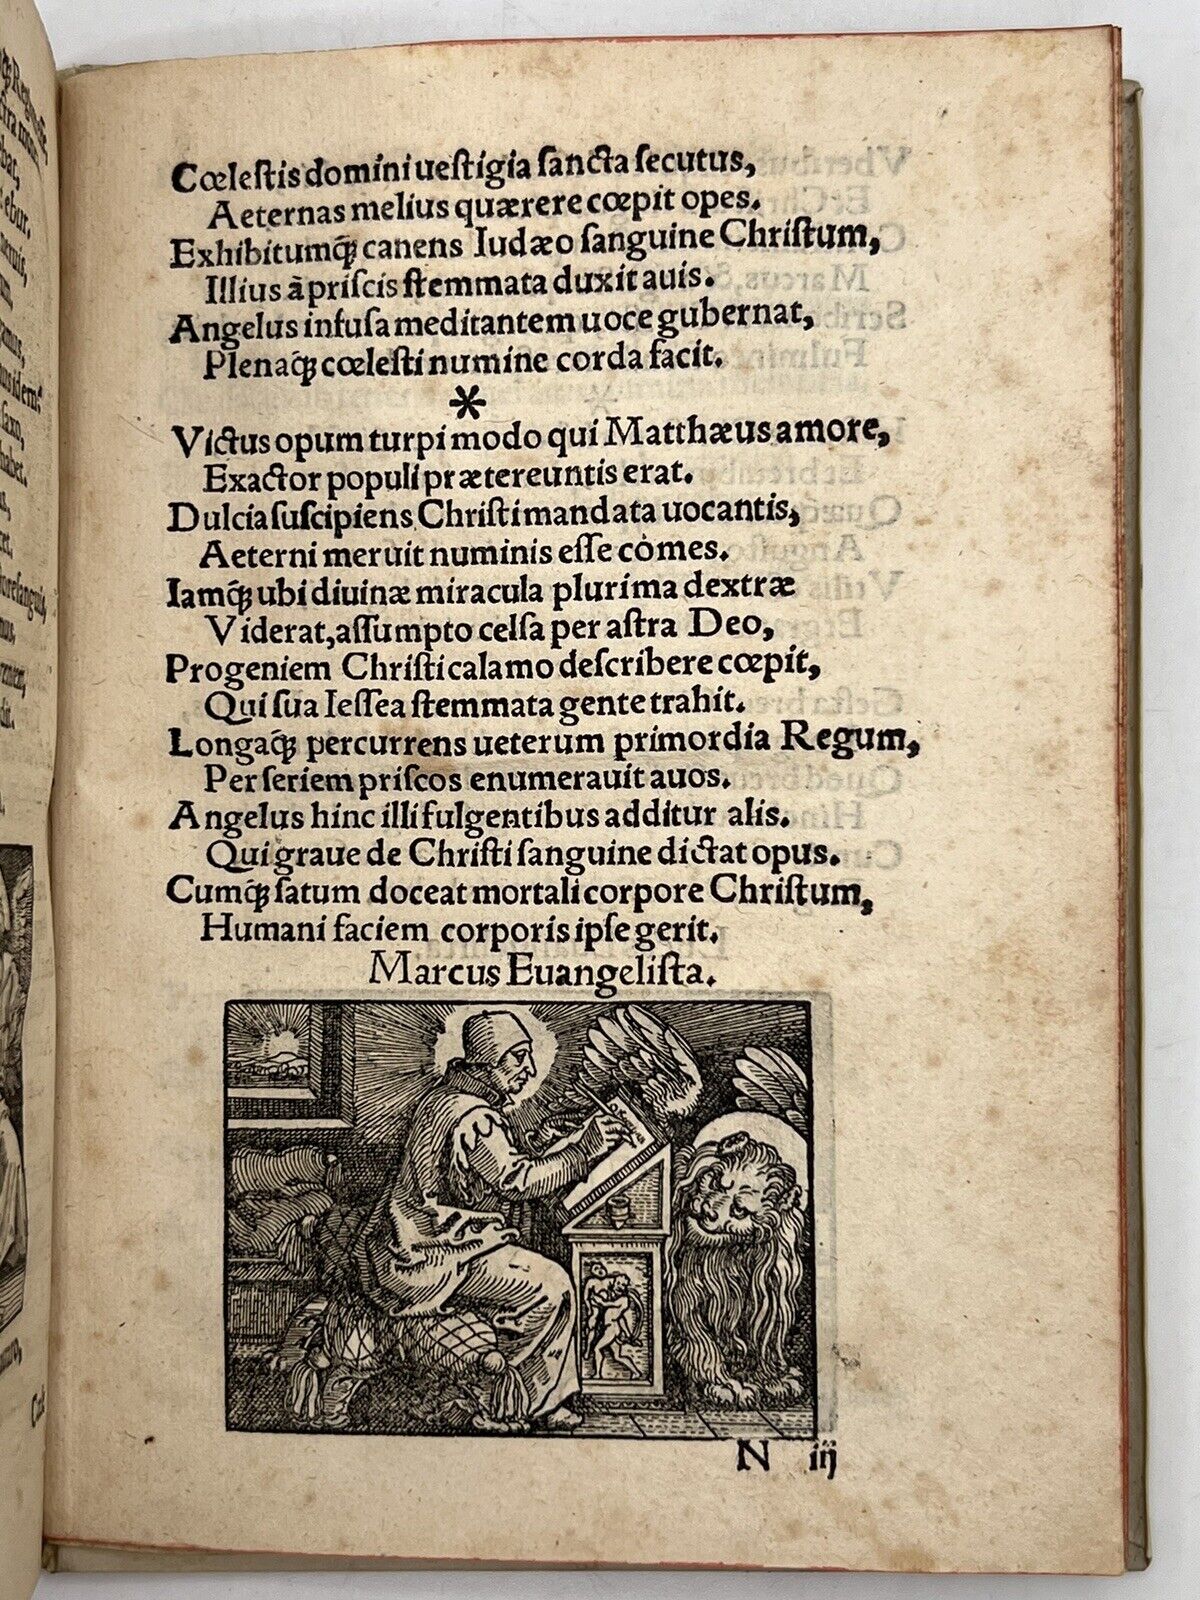 Cœleſtis domini ueſtigia ſancta ſecutus,
Aeternas melius quærere cœpit opes.
Exhibitumq́ꝫ canens Iudæo ſanguine Chriſtum,
Illius à priſcis ſtemmata duxit auis.
Angelus infuſa meditantem uoce gubernat,
Plenaq́ꝫ cœleſti numine corda facit.
*
Victus opum turpi modo qui Matthæus amore,
Exactor populi prætereuntis erat.
Dulcia ſuſcipiens Chriſti mandata uocantis,
Aeterni meruit numinis eſſe comes.
Iamq́ꝫ ubi diuinæ miracula plurima dextræ
Viderat, aſſumpto celſa per aſtra Deo,
Progeniem Chriſti calamo deſcribere cœpit,
Qui ſua Ieſſea ſtemmata gente trahit.
Longaq́ꝫ percurrens ueterum primordia Regum,
Per ſeriem priſcos enumerauit auos.
Angelus hinc illi fulgentibus additur alis.
Qui graue de Chriſti ſanguine dictat opus.
Cumq́ꝫ ſatum doceat mortali corpore Chriſtum,
Humani faciem corporis ipſe gerit.
Marcus Euangeliſta.
N iij